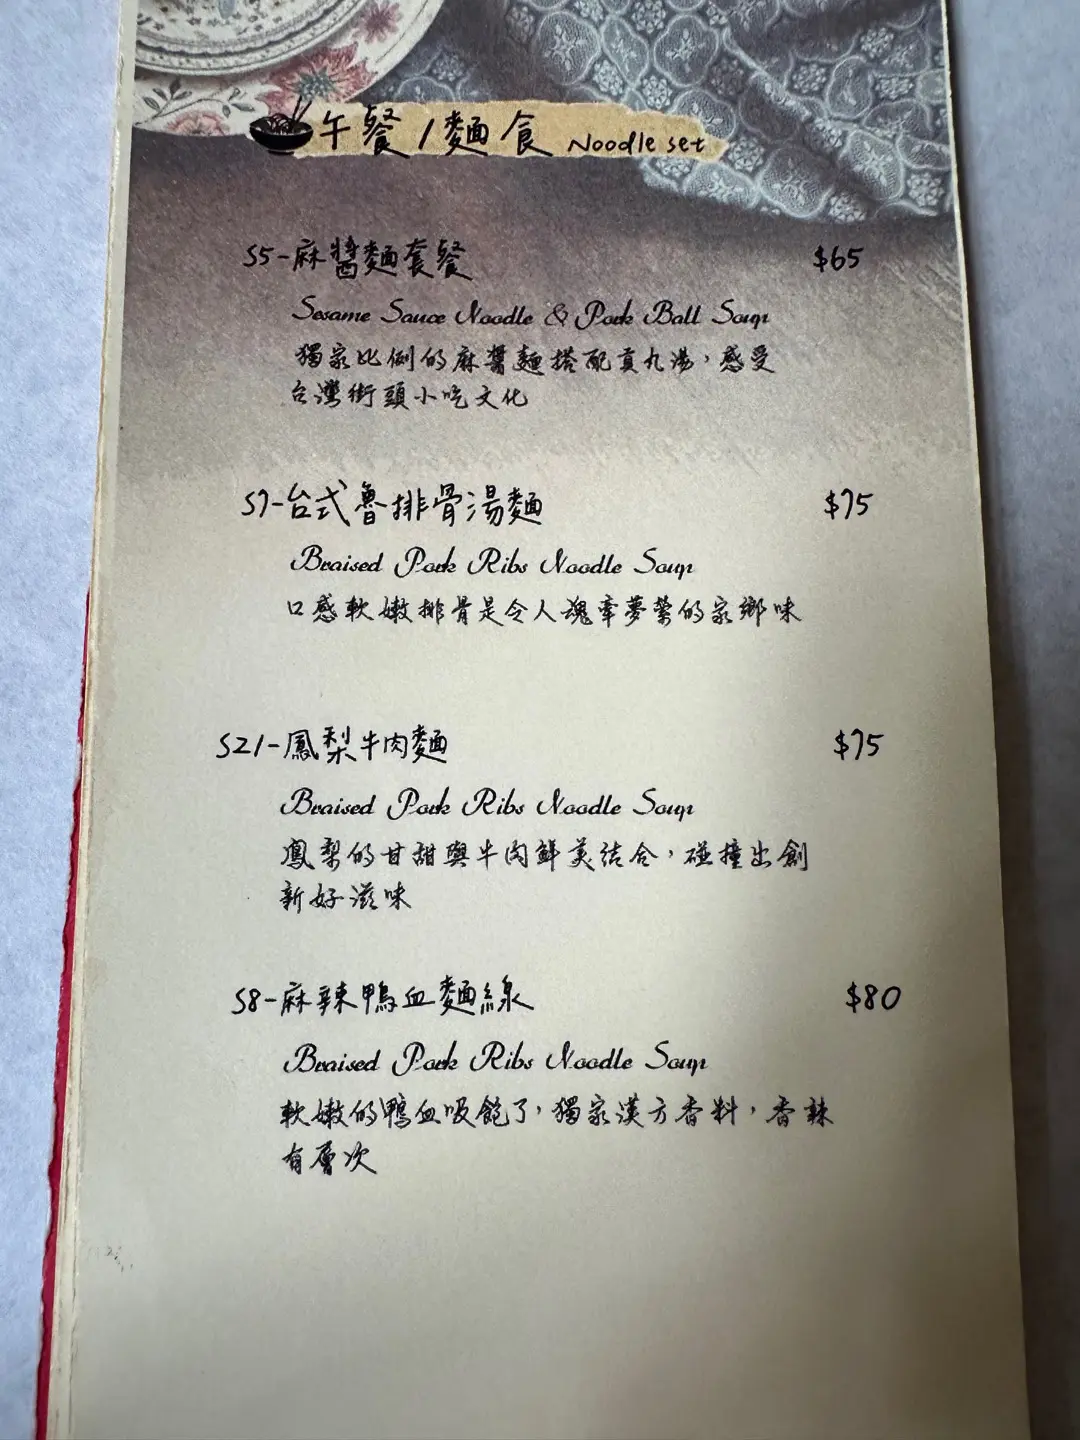 午餐/麵食 Noodle set
S5-麻醬麵套餐 $65
Sesame Sauce Noodle & Pork Ball Soup
獨家比例的麻醬麵搭配貢丸湯,感受
台灣街頭小吃文化
S7-台式魯排骨湯麵 $75
Braised Pork Ribs Noodle Soup
口感軟嫩排骨是令人魂牽夢縈的家鄉味
S21-鳳梨牛肉麵 $75
Braised Pork Ribs Noodle Soup
鳳梨的甘甜與牛肉鮮美結合,碰撞出創
新好滋味
S8-麻辣鴨血麵線 $80
Braised Pork Ribs Noodle Soup
軟嫩的鴨血吸飽了,獨家漢方香料,香辣
有層次